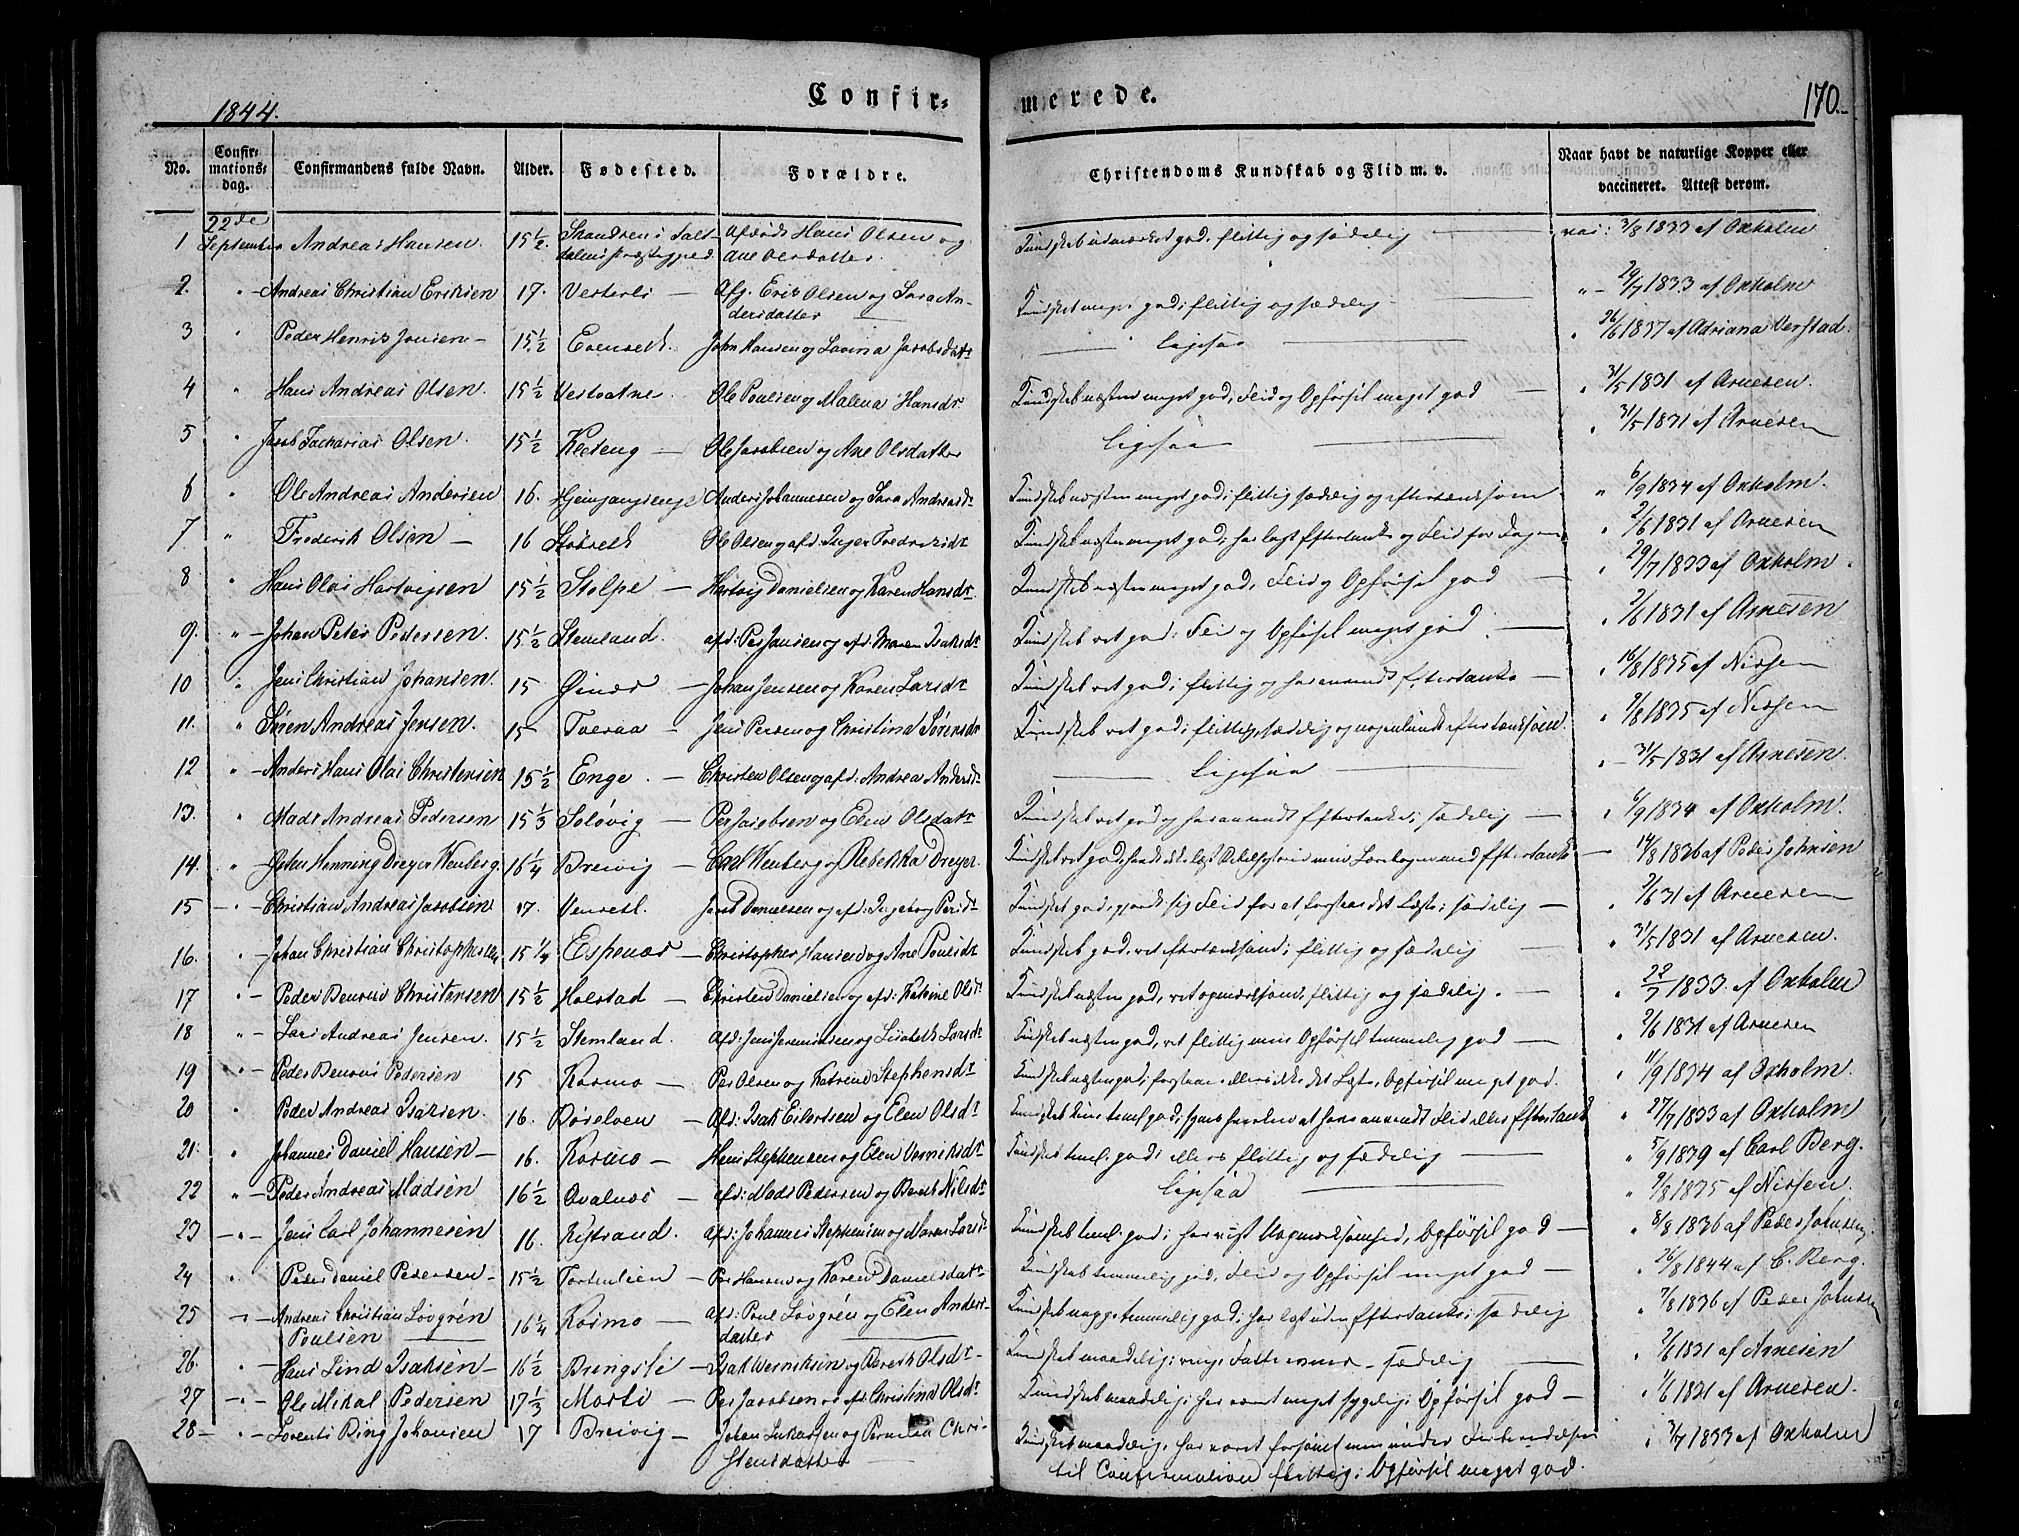 1844.
Confir=
merede.
170.
No.
Confir=
mations=
dag.
Confirmandens fulde Navn.
Alder.
Fødested.
Forældre.
Christendoms Kundskab og Flid m. v.
Naar havt de naturlige Kopper eller
vaccineret. Attest derom.
22de
1 September Andreas Hansen. 15 1/2. i Salt- Hans Olsen og Kundskab udmærket god, flittig og sædelig vac: 3/8 1833 af Oxholm
dalens Præstegjeld Ane Olsdatter.
2. " Andreas Christian Eriksen 17. Vesterli Afg. Eric Olsen og Sara An- Kundskab meget god; flittig og sædelig " 29/7 1833 af Oxholm
dersdatter
3 " Peder Henrik Jonsen 15 1/2 Evenseth. John Hansen og Lavina Jacobsdatr Ligesaa " 26/6 1837 af Adriana Verstad.
4 " Hans Andreas Olsen. 15 1/2 Vestvatne. Ole Poulsen og Malena Hansdr Kundskab næsten meget god; Flid og Opførsel meget god " 31/5 1831 af Arnesen.
5 " Jacob Zacharias Olsen. 15 1/2 Kleseng Ole Jacobsen og Ane Olsdatter Ligesaa " 31/5 1831 af Arnesen
6 " Ole Andreas Andersen 16. Anders Johannesen og Sara Andreasdr Kundskab næsten meget god; flittig sædelig og eftertænksom " 6/9 1834 af Oxholm.
7 " Frederik Olsen 16 Storeth Ole Olsen og afd: Inger Fredriksdr Kundskab næsten meget god; har lagt Eftertanke og Flid for Dagen " 2/6 1831 af Arnesen
8 " Hans Olai Hartvigsen 15 1/2 Stolpe Hartvig Danielsen og Karen Hansdr. Kundskab næsten meget god, Flid og Opførsel god " 29/7 1833 af Oxholm.
9. " Johan Peter Pedersen. 15 1/2 Stemland. afd: Per Jansen og afd: Maren Isaksdr Kundskab ret god; Flid og Opførsel meget god " 2/6 1831 af Arnesen
10 " Jens Christian Johansen. 15 Øines Johan Jensen og Karen Larsdr Kundskab ret god; flittig og har anvendt Eftertanke " 16/8 1835 af Nissen
11. " Søren Andreas Jensen. 15 Tveraa Jens Persen og Christina Sørensdr Kundskab ret god; flittig, sædelig og nogenlunde eftertænksom. " 9/8 1835 af Nissen
12 " Anders Hans Olai Christensen 15 1/2 Enge. Christen Olsen og afd: Andrea Andersdr Ligesaa " 31/5 1831 af Arnesen.
13. " Mads Andreas Pedersen 15 1/3 Soløvig Per Jacobsen og Elen Olsdatr Kundskab ret god og har anvendt Eftertanke; sædelig " 6/9 1834 af Oxholm.
14. " John Henning Dreyer Wenberg. 16 1/4 Breivig Carl Wenberg og Rebekka Dreyer. " 14/8 1836 af Peder Johnsen
15 " Christian Andreas Jacobsen 17. Venset. Jacob Danielsen og afd: Ingeborg Persdr " 2/6 31 af Arnesen
16. " Johan Christian Christophersen 15 1/4 Espenæs Christopher Hansen og Ane Poulsdr Kundskab god, ret eftertænksom; flittig og sædelig " 31/5 1831 af Arnesen.
17 " Peder Benoni Christensen 15 1/2 Holstad Christen Danielsen og afd: Katrine Olsdr Kundskab næsten god, ret opmærksom, flittig og sædelig. " 22/7 1833. af Oxholm
18 " Lars Andreas Jensen. 15 1/2 Stemland. Afd: Jens Jeremiasen og Lisabeth Larsdr Kundskab næsten god, ret flittig men Opførsel temmelig god " 2/6 1831 af Arnesen
19 " Peder Benoni Pedersen 15 Kosmo Per Olsen og Katrine Stephensdr " 11/9 1834 af Oxholm.
20 " Peder Andreas Isaksen. 16. Børelven Afd: Isak Eilertsen og Elen Olsdr " 27/7 1833 af Oxholm
21. " Johannes Daniel Hansen 16. Kosmo Hans Stephensen og Elen Værniksdr Kundskab teml. god; ellers flittig og sædelig " 5/9 1839 af Carl Berg.
22 " Peder Andreas Madsen 16 1/2 Qvalnæs afd: Mads Pedersen og Bereth Nilsdr Ligesaa " 9/8 1835 af Nissen.
23 " Jens Carl Johannesen 16 Kistrand. Afd: Johannes Stephensen og Maren Larsdr Kundskab teml. god; har viist Uopmærksomhed, Opførsel god " 8/8 1836 af Peder Johnsen
24 " Peder Daniel Pedersen 15 1/2 Tortenlien Per Hansen og Karen Danielsdatr Kundskab temmelig god, Flid og Opførsel meget god " 26/8 1844 af C. Berg.
25 " Andreas Christian Løvgrén 16 1/4 Kosmo afd: Poul Løvgrén og Elen Anders- Kundskab neppe temmelig god; har læst uden Eftertanke; sædelig " 7/8 1836 af Peder Johnsen
Poulsen datter
26. " Hans Lind Isaksen 16 1/2 Bringsli Isak Værniksen og Bereth Olsdr Kundskab maadelig; ringe Fatteevne. sædelig " 2/6 1831 af Arnesen
27 " Ole Mikal Pedersen 17 1/3 Morti Per Jacobsen og afd: Christina Olsdr Kundskab maadelig; har været meget sygelig; Opførsel god " 1/6 1831 af Arnesen.
28 " Lorents Ring Johansen 17 Breivig Johan Lukassen og Pernilla Chri- Kundskab maadelig, har været forsømt men under Forberedelsen " 3/7 1833 af Oxholm
stensdatter til Confirmation flittig; Opførsel meget god.